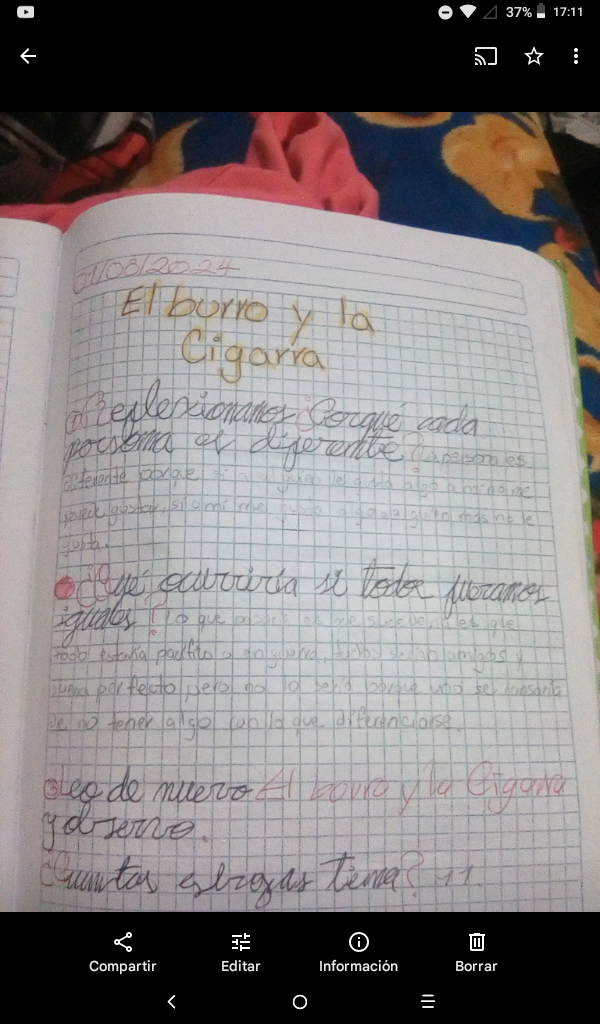 37% 17:11
01/08/2024
El burro y la
Cigarra
① Reflexionamos ¿Porqué cada
persona es diferente? La persona es
diferente porque si a alguien le gusta algo a mí no me
puede gustar, si a mí me gusta algo a alguien más no le
gusta.
¿Qué ocurriría si todos fueramos
iguales? lo que es que
todo estaría pacífico o en guerra, todos serían amigos y
perfecto, pero no lo sería porque uno se cansaría
de no tener algo con lo que diferenciarse.
③ Leo de nuevo El burro y la Cigarra
y observo.
¿Cuantas estrofas tiene? 11.
Compartir Editar Información Borrar